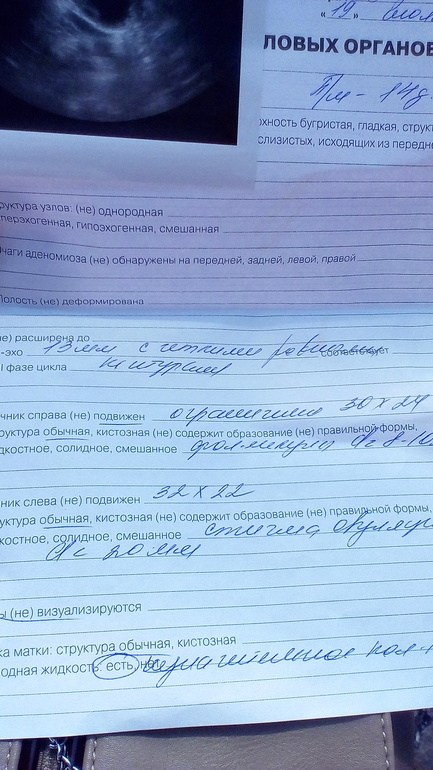 « 19 »
ЛОВЫХ ОРГАНОВ
П/м - 14 д
рхность бугристая, гладкая, структ
слизистых, исходящих из передне
руктура узлов: (не) однородная
перэхогенная, гипоэхогенная, смешанная
чаги аденомиоза (не) обнаружены на передней, задней, левой, правой
Полость (не) деформирована
не) расширена до
-эхо 13 мм с четкими ровными соответствует
I фазе цикла контурами
чник справа (не) подвижен ограничение 30 х 24
руктура обычная, кистозная (не) содержит образование (не) правильной формы,
дкостное, солидное, смешанное фолликулы d= 8-10
ник слева (не) подвижен 32 х 22
уктура обычная, кистозная (не) содержит образование (не) правильной формы,
костное, солидное, смешанное стигма овуляц
d= 20 мм
ы (не) визуализируются
ка матки: структура обычная, кистозная
одная жидкость: есть, нет незначительное кол-